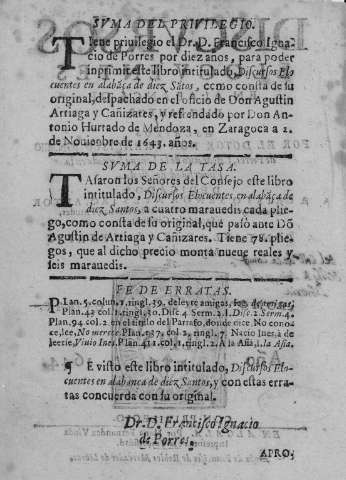 SVMA DEL PRIVILEGIO.
Tiene privilegio el Dr. D. Francisco Igna
cio de Porres por diez años, para poder
inprimir este libro intitulado, Discursos Elo
cuentes en alabãça de diez Sãtos, como consta de su
original, despachado en el oficio de Don Agustin
Artiaga y Cañizares, y refrendado por Don An-
tonio Hurtado de Mendoza, en Zaragoca a 2.
de Nouienbre de 1643. años.
SVMA DE LA TASA.
Tasaron los Señores del Consejo este libro
intitulado, Discursos Elocuentes, en alabãça de
diez Santos, a cuatro marauedis cada plie-
go, como consta de su original, que pasò ante Dõ
Agustin de Artiaga y Cañizares. Tiene 78. plie-
gos, que al dicho precio monta nueue reales y
seis marauedis.
FE DE ERRATAS.
Plan. 5. colun. 1. ringl. 39. deleyte amigos,
Plan. 43 col. 1. ringl. 30. Disc 4. Serm. 2. l. Disc. 2. Serm. 4.
Plan. 94. col. 2. en el titulo del Parrafo, donde dice No cono-
ce, lee, No merece. Plan. 137. col. 2. ringl. 7. Nacio Ines, à de
leerse, Viuio Ines. Plan. 411. col. 1. ringl. 2. A la Asia, l. la Asia.
¶ E visto este libro intitulado, Discursos Elo-
cuentes en alabanca de diez Santos, y con estas erra-
tas concuerda con su original.
Dr. D. Francisco Ignacio
de Porres.
APRO.